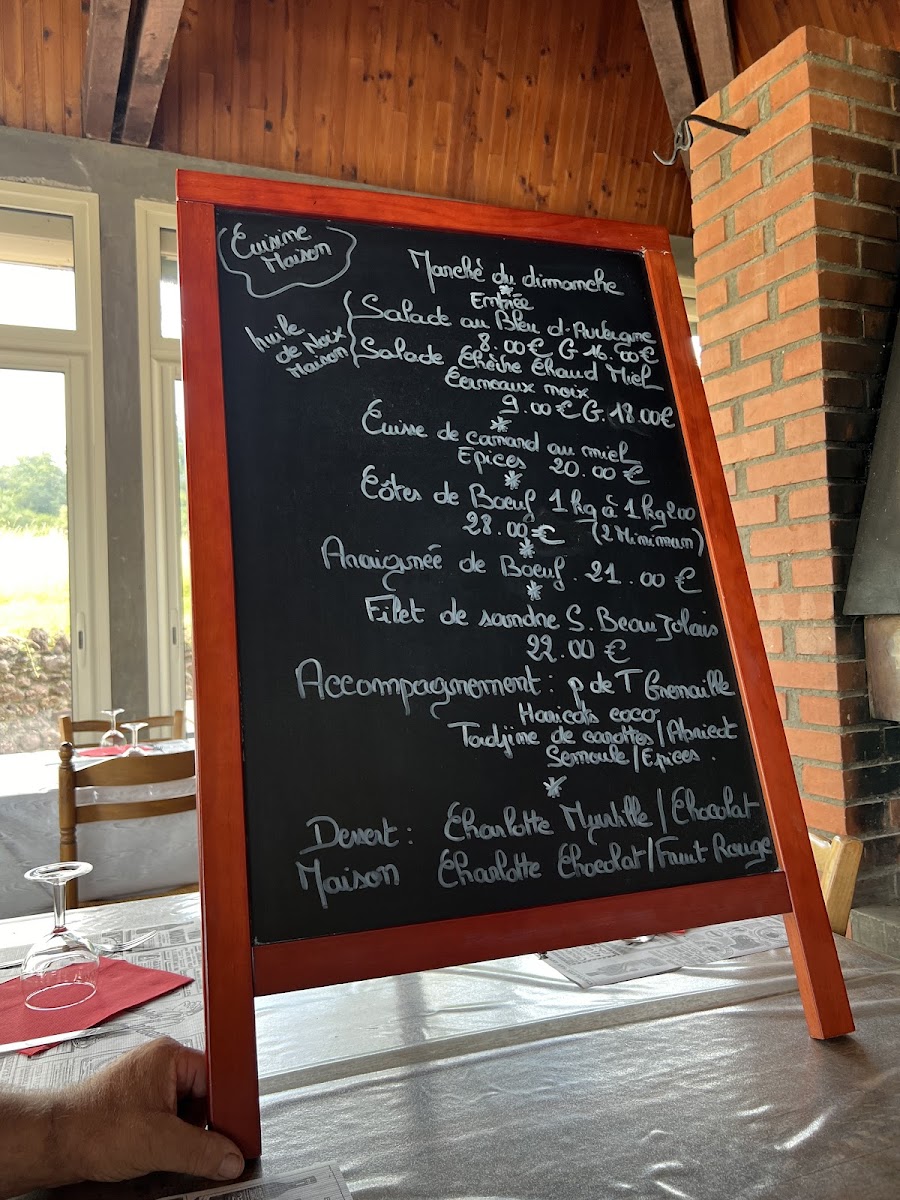 Cuisine
Maison
Marché du dimanche
*
Entrée
huile
de Noix
Maison
Salade au Bleu d'Auvergne
8.00€ G 16.00€
Salade Chèvre Chaud Miel
Cerneaux noix
9.00€ G.18.00€
*
Cuisse de canard au miel
Epices 20.00€
*
Côtes de Boeuf 1kg à 1kg200
28.00€ (2 Minimum)
*
Araignée de Boeuf. 21.00€
*
Filet de sandre S. Beaujolais
22.00€
Accompagnement: p de T Grenaille
Haricots coco
Tadjine de carottes/Abricot
Semoule/Epices.
*
Dessert: Charlotte Myrtille/Chocolat
Maison Charlotte Chocolat/Fruit Rouge